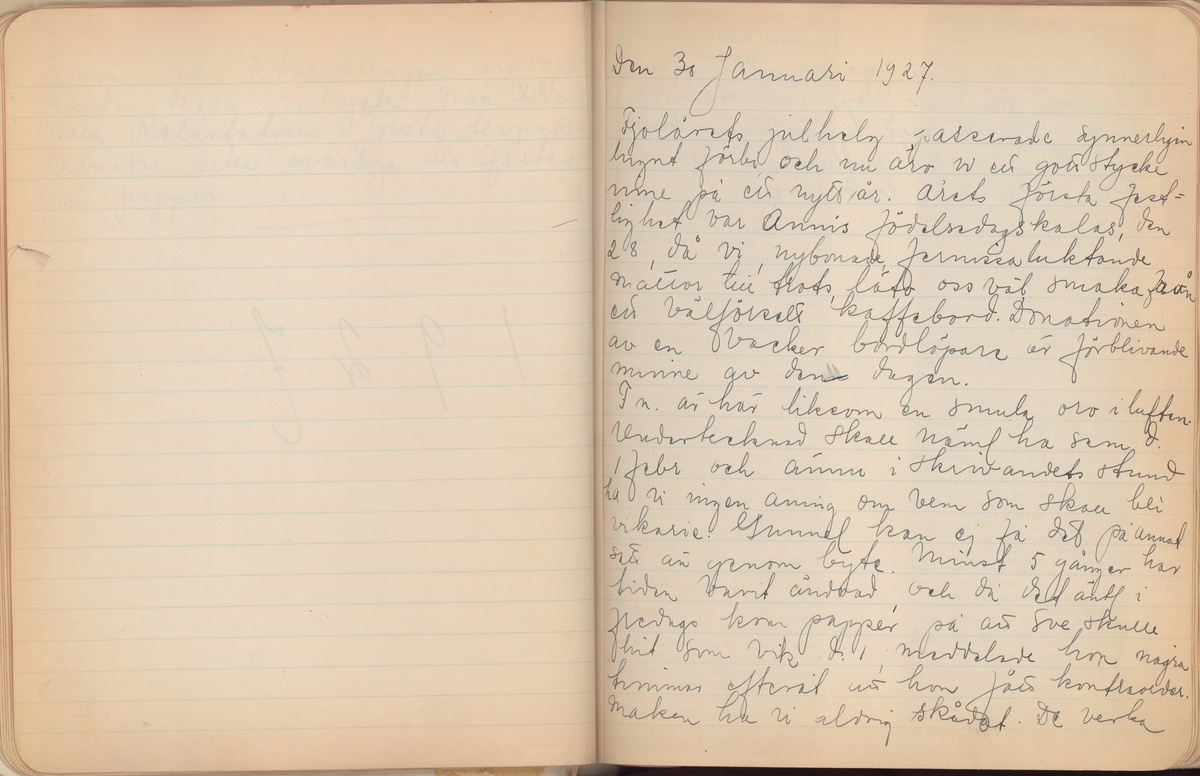 Den 30 Januari 1927.
Fjolårets julhelg passerade synnerligen
lugnt förbi, och nu äro vi ett gott stycke
inne på ett nytt år. Årets första fest-
lighet var Annis födelsedagskalas, den
28, då vi, nybonade, fernissaluktande
mattor till trots, läto oss väl smaka från
ett välförsett kaffebord. Donationen
av en vacker bordlöpare är förblivande
minne av den dagen.
F.n. är här liksom en smula oro i luften.
Undertecknad skall näml ha sem. d.
1 febr och ännu i skrivandets stund
ha vi ingen aning om vem som skall bli
vikarie. Gunnel kan ej få det på annat
sätt än genom byte. Minst 5 gånger har
tiden varit ändrad, och då det äntl i
fredags kom papper på att Sve skulle
hit som vik d. 1, meddelade hon några
timmar efteråt att hon fått kontraorder.
Maken ha vi aldrig skådat. De verka
1927